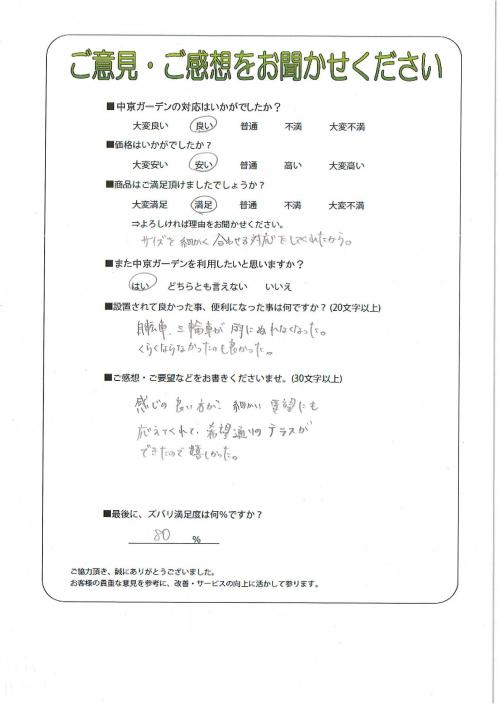 ご意見・ご感想をお聞かせください
■中京ガーデンの対応はいかがでしたか?
大変良い 良い 普通 不満 大変不満
■価格はいかがでしたか?
大変安い 安い 普通 高い 大変高い
■商品はご満足頂けましたでしょうか?
大変満足 満足 普通 不満 大変不満
⇒よろしければ理由をお聞かせください。
サイズを細かく合わせる対応をしてくれたから。
■また中京ガーデンを利用したいと思いますか?
はい どちらとも言えない いいえ
■設置されて良かった事、便利になった事は何ですか?(20文字以上)
自転車、三輪車が雨にぬれなくなった。
くらくならなかったのも良かった。
■ご感想・ご要望などをお書きくださいませ。(30文字以上)
感じの良い方が、細かい要望にも
応えてくれて、希望通りのテラスが
できたので嬉しかった。
■最後に、ズバリ満足度は何%ですか?
80 %
ご協力頂き、誠にありがとうございました。
お客様の貴重な意見を参考に、改善・サービスの向上に活かして参ります。